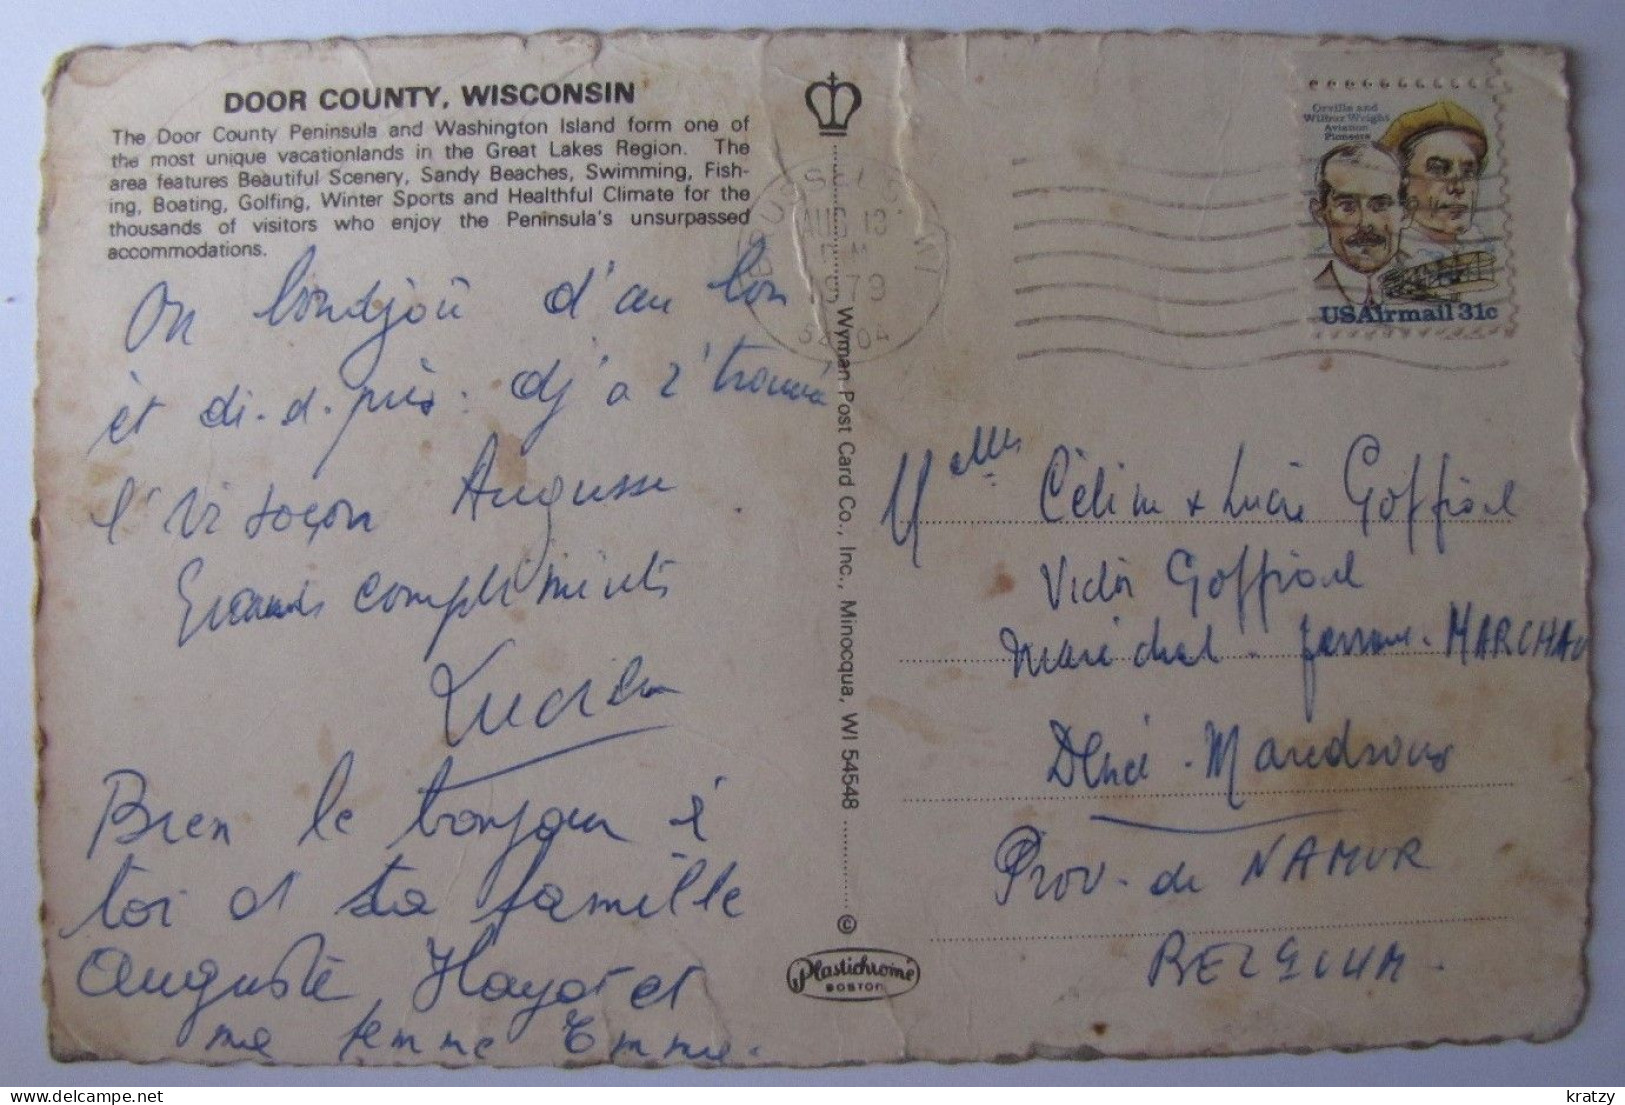 DOOR COUNTY, WISCONSIN
The Door County Peninsula and Washington Island form one of
the most unique vacationlands in the Great Lakes Region. The
area features Beautiful Scenery, Sandy Beaches, Swimming, Fish-
ing, Boating, Golfing, Winter Sports and Healthful Climate for the
thousands of visitors who enjoy the Peninsula's unsurpassed
accommodations.
On bondjoû d'au lon
èt di-d-près: dj'a r'trouvé
l' Auguste
Grands compliments
Lucien
Bien le bonjour é
toi et ta famille
Auguste Hayot et
me femme Emma.
Wyman Post Card Co., Inc., Minocqua, WI 54548
©
Plastichrome
BOSTON
BRUSSELS WI
AUG 13
PM
1979
54204
Orville and
Wilbur Wright
Aviation
Pioneers
USAirmail 31c
Melles Célina & Lucie Goffioul
Victor Goffioul
Maréchal - MARCHAU
Prov. de NAMUR
BELGIUM.
kratzy